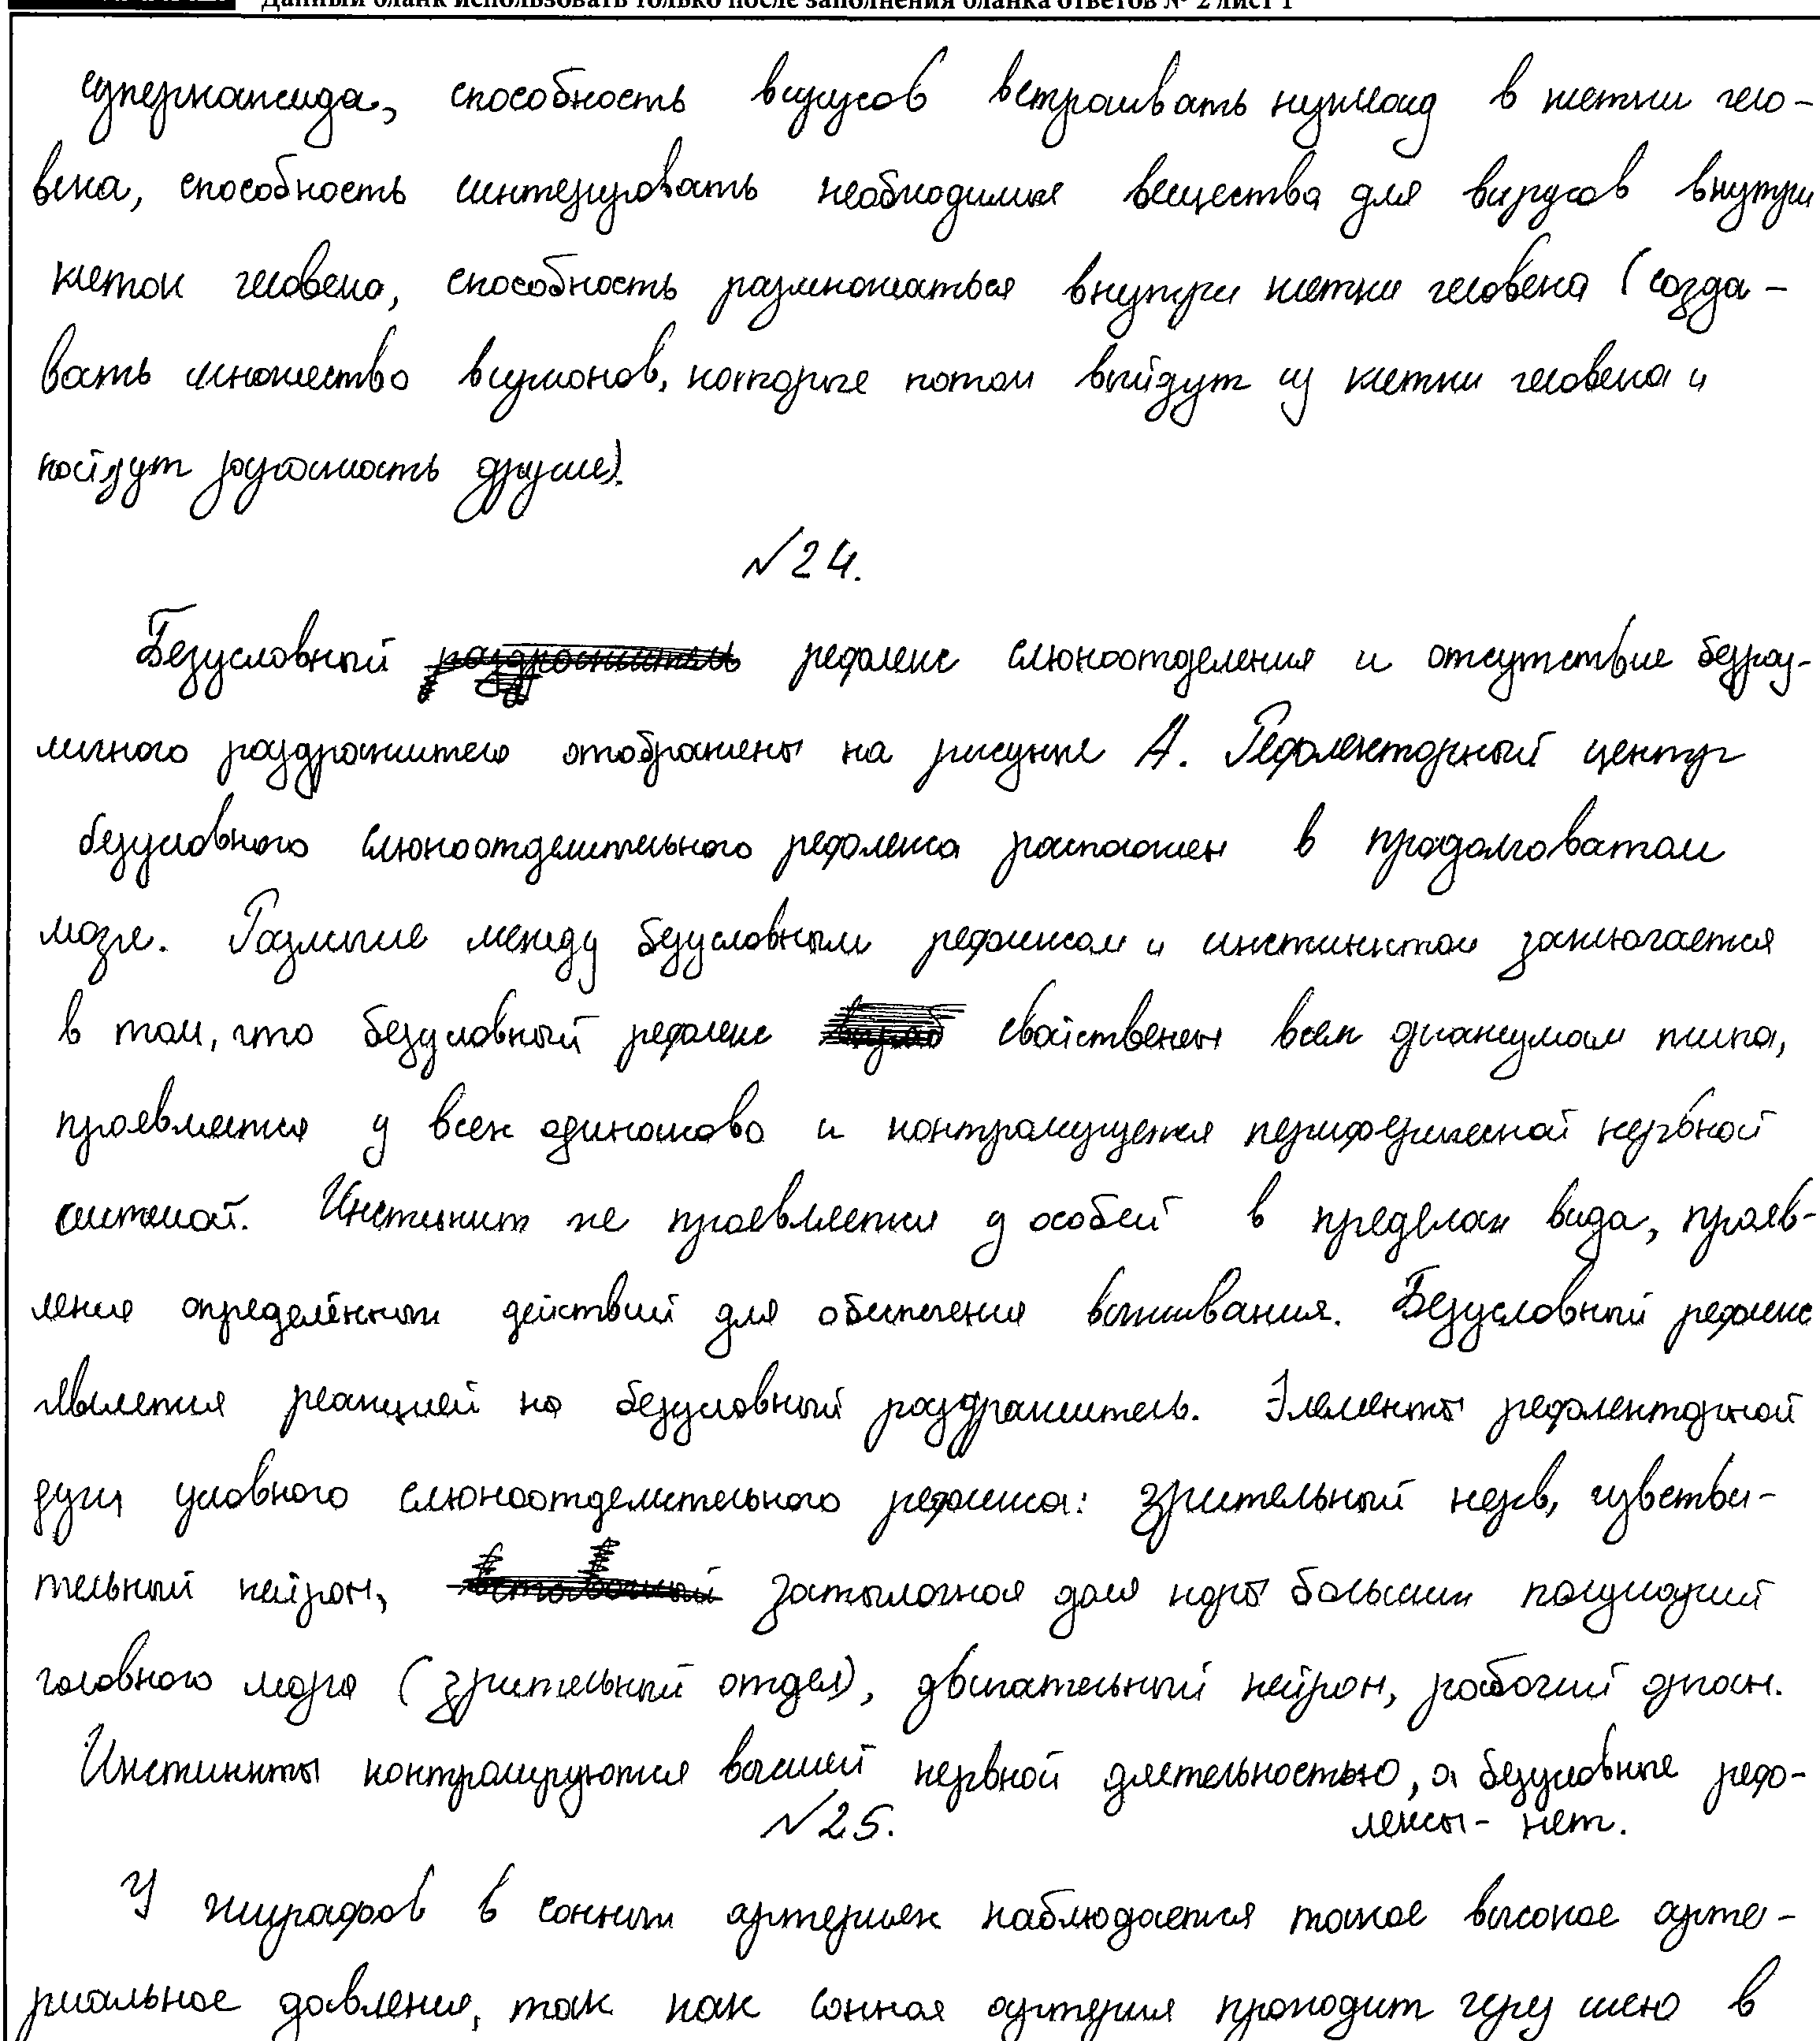 Данный бланк использовать только после заполнения бланка ответов № 2 лист 1
суперкапсида, способность вирусов встраивать нуклеоид в клетки чело-
века, способность синтезировать необходимые вещества для вирусов внутри
клеток человека, способность размножаться внутри клетки человека (созда-
вать множество вирионов, которые потом выйдут из клетки человека и
пойдут заражать другие).
№24.
Безусловный рефлекс слюноотделения и отсутствие безраз-
личного раздражителя отображены на рисунке А. Рефлекторный центр
безусловного слюноотделительного рефлекса расположен в продолговатом
мозге. Различие между безусловным рефлексом и инстинктом заключается
в том, что безусловный рефлекс свойственен всем организмам типа,
проявляется у всех одинаково и контролируется периферической нервной
системой. Инстинкт же проявляется у особей в пределах вида, прояв-
ление определённых действий для обеспечения выживания. Безусловный рефлекс
является реакцией на безусловный раздражитель. Элементы рефлекторной
дуги условного слюноотделительного рефлекса: зрительный нерв, чувстви-
тельный нейрон, затылочная доля коры больших полушарий
головного мозга (зрительный отдел), двигательный нейрон, рабочий орган.
Инстинкты контролируются высшей нервной деятельностью, а безусловные реф-
лексы - нет.
№25.
У жирафов в сонных артериях наблюдается такое высокое арте-
риальное давление, так как сонная артерия проходит через шею в